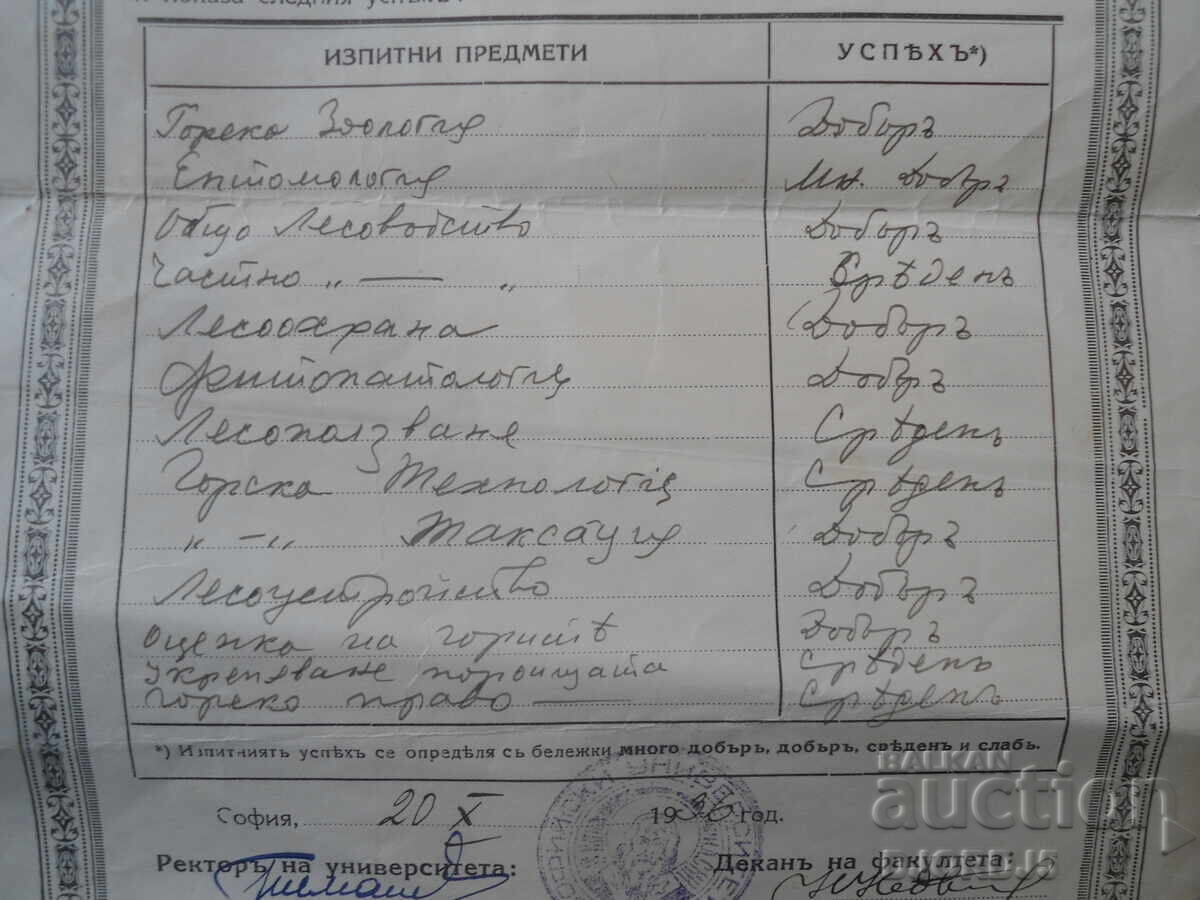 и показа следния успѣхъ:
ИЗПИТНИ ПРЕДМЕТИ УСПѢХЪ*)
Горска Зоология Добъръ
Ентомология Мн. Добъръ
Общо Лесовъдство Добъръ
Частно „ — „ Срѣденъ
Лесоохрана Добъръ
Фитопатология Добъръ
Лесоползване Срѣденъ
Горска Технология Срѣденъ
„ – „ Таксация Добъръ
Лесоустройство Добъръ
Оценка на горитѣ Добъръ
Укрепяване пороищата Срѣденъ
Горско право — Срѣденъ
*) Изпитниятъ успѣхъ се опредѣля съ бележки много добъръ, добъръ, срѣденъ и слабъ.
София, 20 X 1936 год.
Ректоръ на университета: Деканъ на факултета:
BALKAN
auction